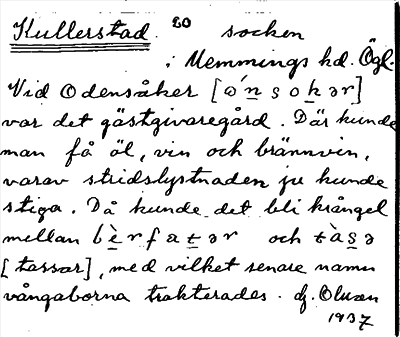 Kullerstad. 20 socken
i Memmings hd. Ögl.
Vid Odensåker [ó̱ṉs̱oḵər]
var det gästgivaregård. Där kunde
man få öl, vin och brännvin,
varav stridslystnaden ju kunde
stiga. Då kunde det bli krångel
mellan bè̱rfaṯər och tàs̱ə
[tassar], med vilket senare namn
vångaborna trakterades. dj. Olsson
1937